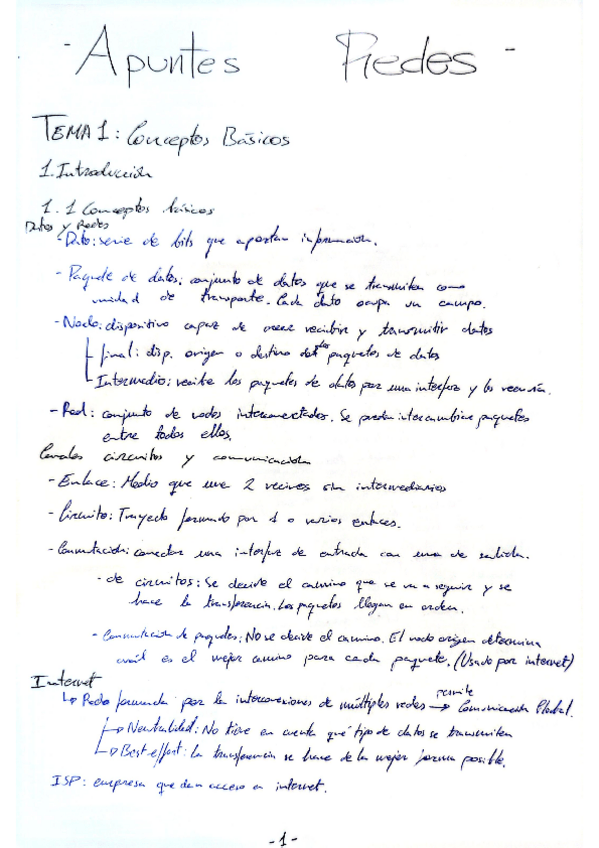 - Apuntes Redes -
TEMA 1: Conceptos Básicos
1. Introducción
1.1 Conceptos básicos
Datos y Redes
- Dato: serie de bits que aportan información.
- Paquete de datos: conjunto de datos que se transmiten como
unidad de transporte. Cada dato ocupa un campo.
- Nodo: dispositivo capaz de crear recibir y transmitir datos
final: disp. origen o destino de los paquetes de datos
Intermedio: recibe los paquetes de datos por una interfaz y los reenvía.
- Red: conjunto de nodos interconectados. Se pueden intercambiar paquetes
entre todos ellos.
Canales circuitos y comunicación
- Enlace: Medio que une 2 vecinos sin intermediarios
- Circuito: Trayecto formado por 1 o varios enlaces.
- Conmutación: conectar una interfaz de entrada con una de salida.
- de circuitos: Se decide el camino que se va a seguir y se
hace la transferencia. Los paquetes llegan en orden.
- Conmutación de paquetes: No se decide el camino. El nodo origen determina
cuál es el mejor camino para cada paquete. (Usado por internet)
Internet
↳ Redo formada por la interconexiones de múltiples redes → permite Comunicación Global.
↳ Neutralidad: No tiene en cuenta qué tipo de datos se transmiten
↳ Best-effort: la transferencia se hace de la mejor forma posible.
ISP: empresa que dan acceso en internet.
- 1 -